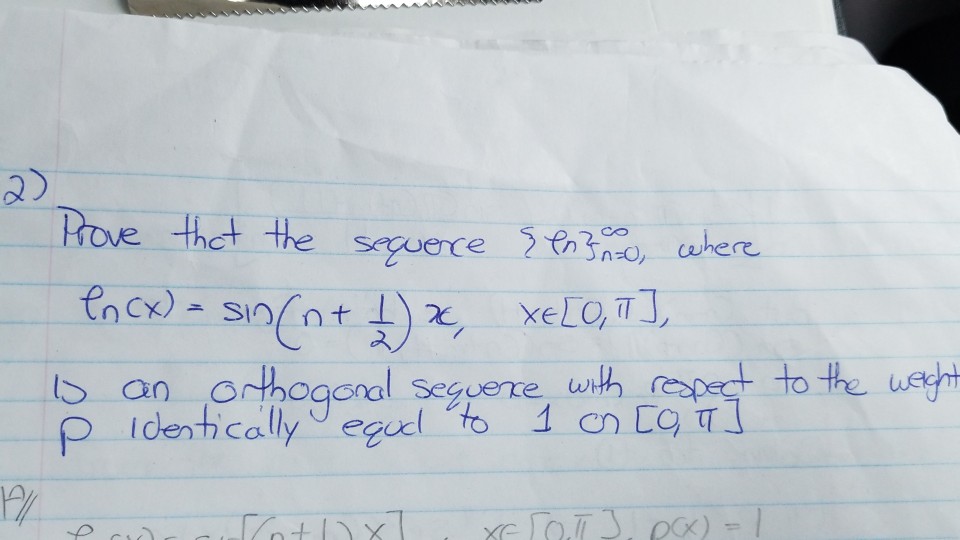 2)
Prove that the sequence {φn}∞n=0, where
φn(x) = sin(n + 1/2) x, x∈[0, π],
is an orthogonal sequence with respect to the weight
ρ identically equal to 1 on [0, π]
A//
x∈[0,π], ρ(x) = 1